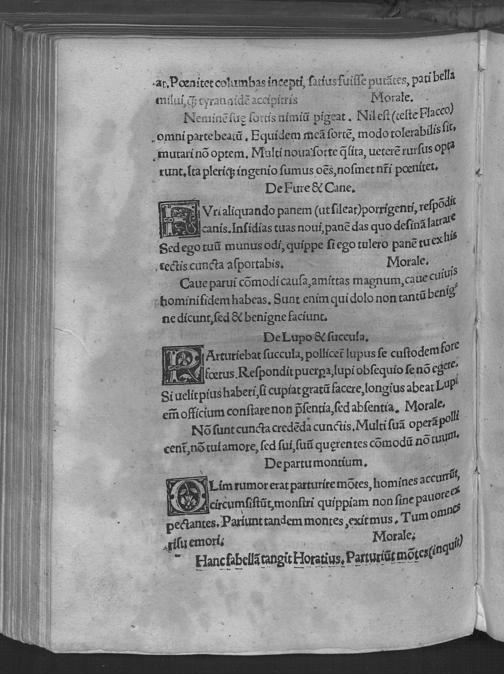 at. Pœnitet columbas incepti, satius fuisse putãtes, pati bella
milui, q̃; tyrannidẽ accipitris Morale.
Neminẽ suę sortis nimiũ pigeat. Nil est (teste Flacco)
omni parte beatũ. Equidem meã sortẽ, modo tolerabilis sit,
mutari nõ optem. Multi noua sorte q̃sita, ueterẽ rursus opta
runt. Ita pleriq; ingenio sumus oẽs, nosmet nr̃i pœnitet.
De Fure & Cane.
FVri aliquando panem (ut sileat) porrigenti, respõdit
canis. Insidias tuas noui, panẽ das quo desinã latrare
Sed ego tuũ munus odi, quippe si ego tulero panẽ tu ex his
tectis cuncta asportabis. Morale.
Caue parui cõmodi causa, amittas magnum, caue cuiuis
homini fidem habeas. Sunt enim qui dolo non tantũ benig
ne dicunt, sed & benigne faciunt.
De Lupo & succula.
PArturiebat succula, pollicet lupus se custodem fore
fœtus. Respondit puerpa, lupi obsequio se nõ egere.
Si uelit pius haberi, si cupiat gratũ facere, longius abeat Lupi
em̃ officium constare non p̃sentia, sed absentia. Morale.
Nõ sunt cuncta credẽda cunctis. Multi suã operã polli
cent, nõ tui amore, sed sui, suũ quęrentes cõmodũ nõ tuum.
De partu montium.
OLim rumor erat parturire mõtes, homines accurrũt,
circumsistũt, monstri quippiam non sine pauore ex
pectantes. Pariunt tandem montes, exit mus. Tum omnes
risu emori. Morale.
Hanc fabellã tangit Horatius. Parturiũt mõtes (inquit)